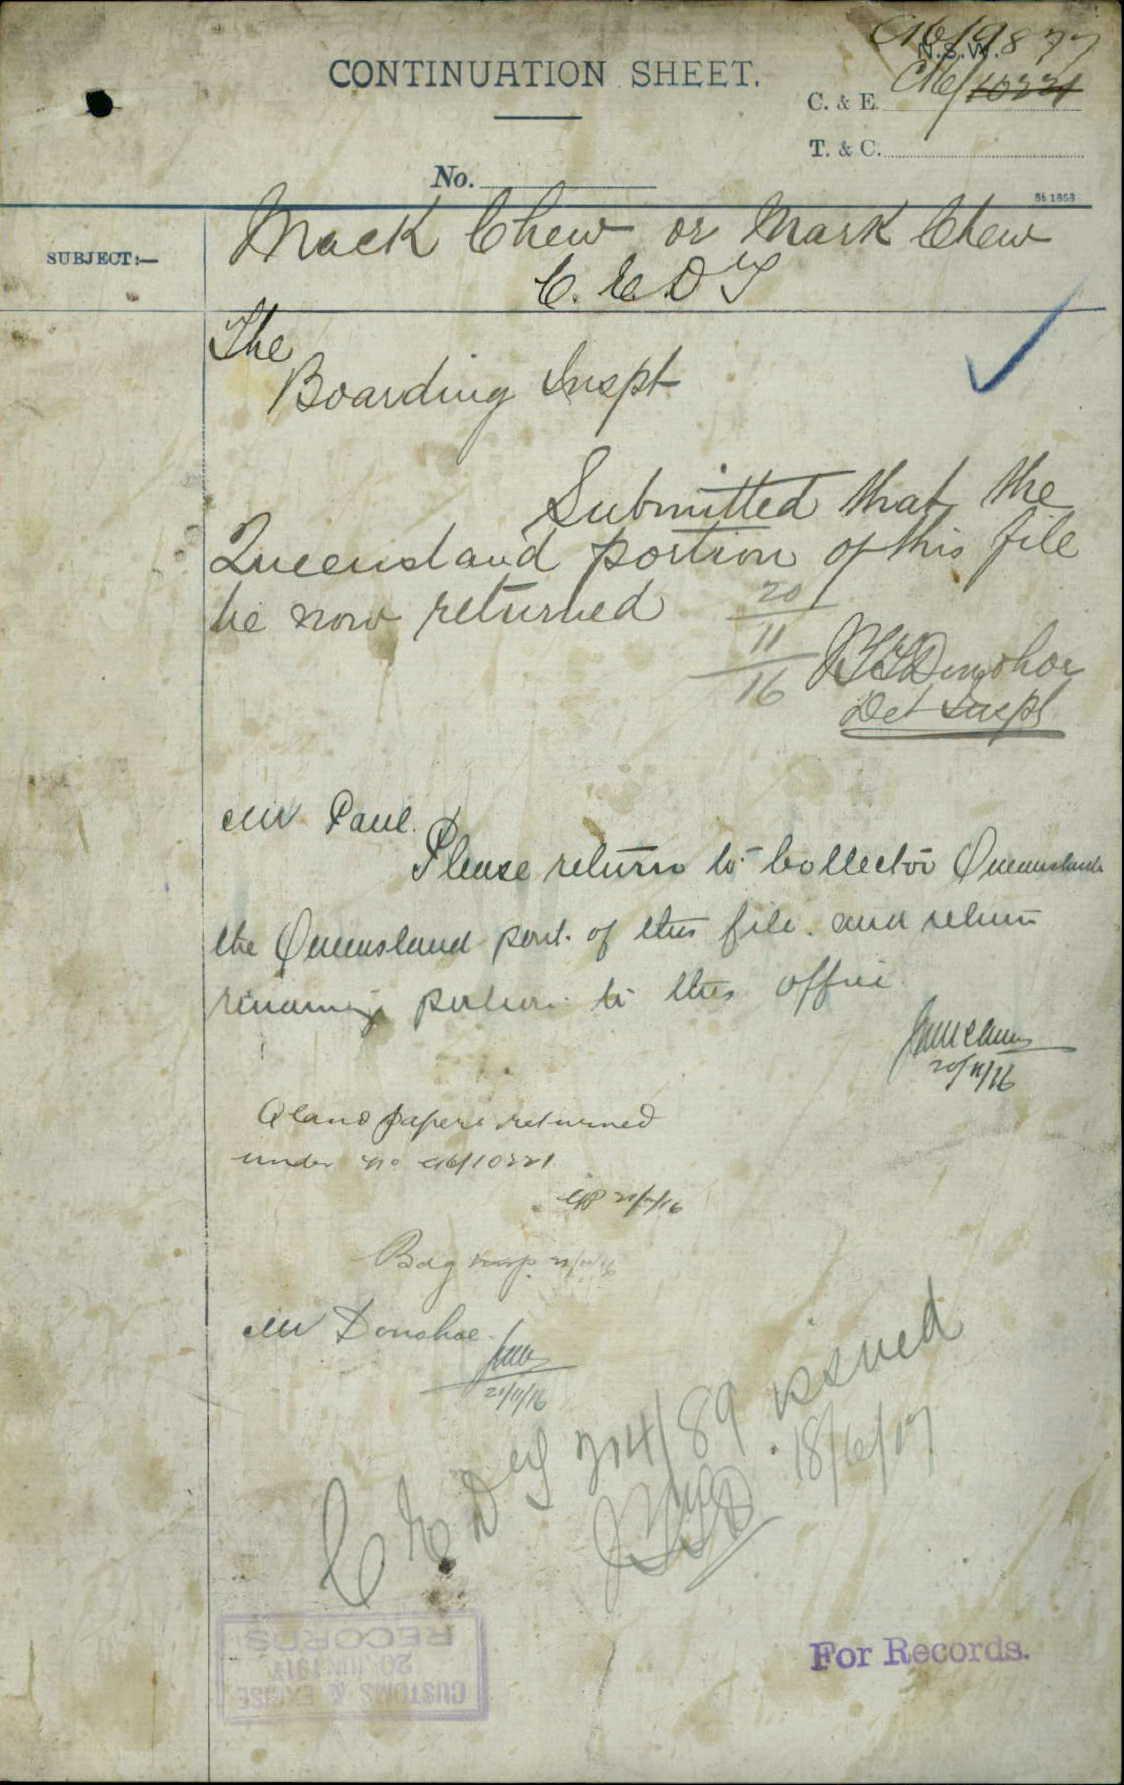 C16/9877
N.S.W.
CONTINUATION SHEET.
C. & E. C16/10221
T. & C.
No.
SUBJECT:—
Mack Chew or Mark Chew
C. E. D. T
The
Boarding Inspt
Submitted that the
Queensland portion of this file
be now returned
20
11
16
Donohoe
Det Inspt
Mr Paul.
Please return to Collector Queensland
the Queensland port. of this file. and return
remaining portion to this office
20/11/16
Qland papers returned
under no C16/10221
Bdg Insp
Mr Donohoe.
21/11/16
C E D T 214/89 issued
18/6/17
CUSTOMS & EXCISE
20 JUN 1917
RECORDS
For Records.